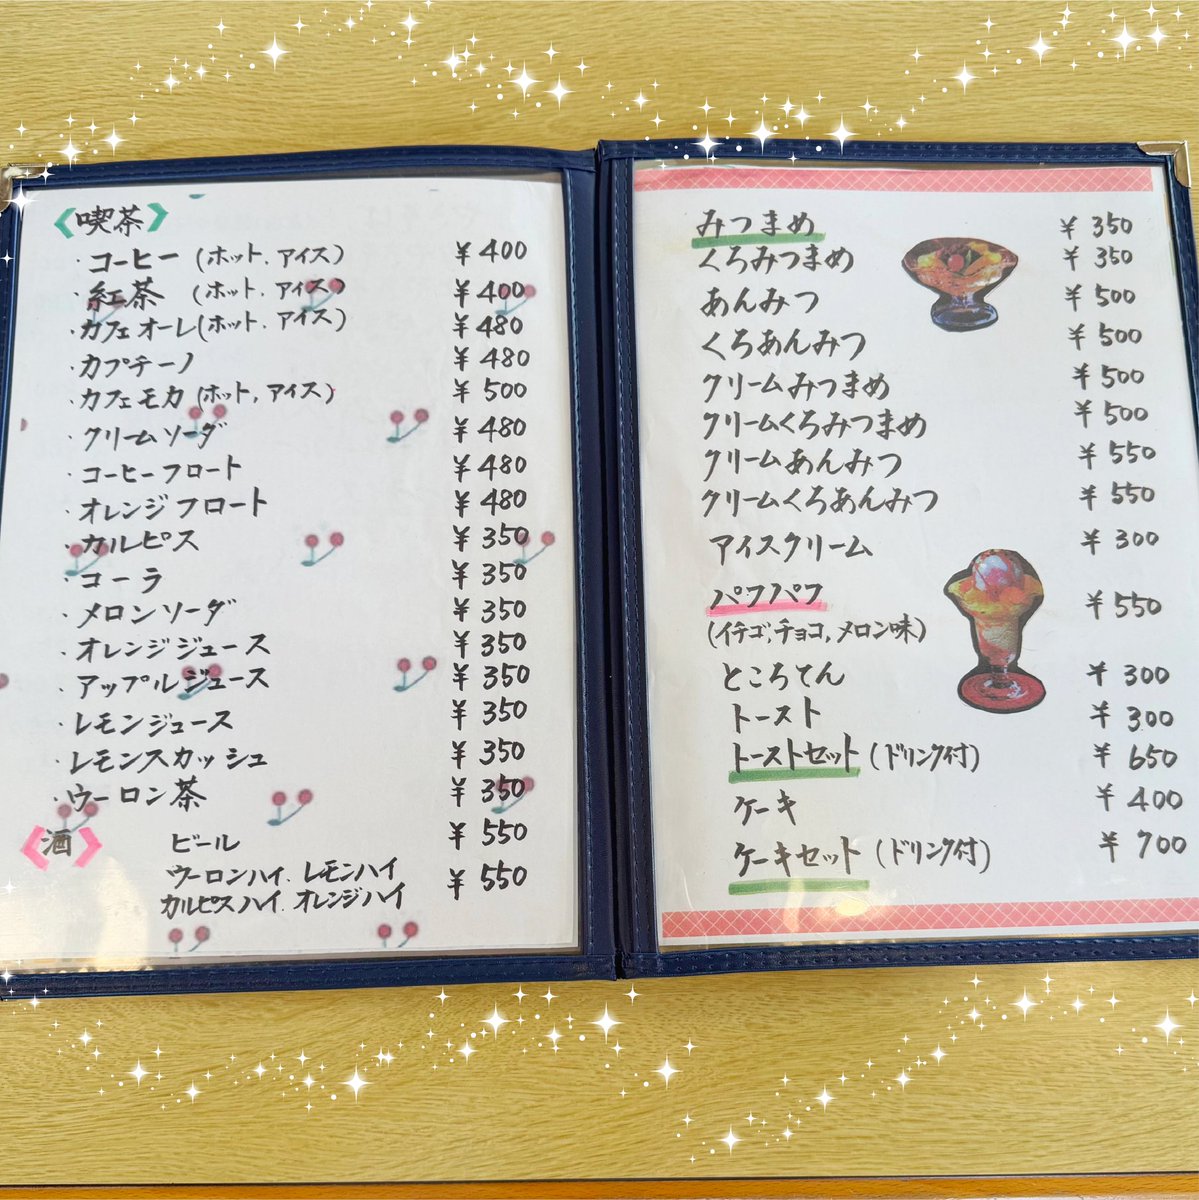 〈喫茶〉
・コーヒー (ホット、アイス) ¥400
・紅茶 (ホット、アイス) ¥400
・カフェオーレ (ホット、アイス) ¥480
・カプチーノ ¥480
・カフェモカ (ホット, アイス) ¥500
・クリームソーダ ¥480
・コーヒーフロート ¥480
・オレンジフロート ¥480
・カルピス ¥350
・コーラ ¥350
・メロンソーダ ¥350
・オレンジジュース ¥350
・アップルジュース ¥350
・レモンジュース ¥350
・レモンスカッシュ ¥350
・ウーロン茶 ¥350
〈酒〉 ビール ¥550
ウーロンハイ、レモンハイ ¥550
カルピスハイ、オレンジハイ
みつまめ ¥350
くろみつまめ ¥350
あんみつ ¥500
くろあんみつ ¥500
クリームみつまめ ¥500
クリームくろみつまめ ¥500
クリームあんみつ ¥550
クリームくろあんみつ ¥550
アイスクリーム ¥300
パフパフ ¥550
(イチゴ,チョコ,メロン味)
ところてん ¥300
トースト ¥300
トーストセット (ドリンク付) ¥650
ケーキ ¥400
ケーキセット (ドリンク付) ¥700